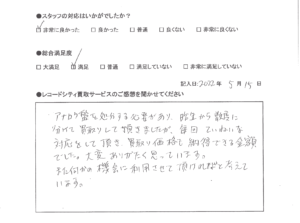 ●スタッフの対応はいかがでしたか？
☑非常に良かった □良かった □普通 □良くない □非常に良くない
●総合満足度
□大満足 ☑満足 □普通 □満足していない □非常に満足していない
記入日：2022年 5月 15日
●レコードシティ買取サービスのご感想を聞かせてください
アナログ盤を処分する必要があり、昨年から数回に
分けて買取りして頂きましたが、毎回ていねいな
対応をして頂き、買取り価格も納得できる金額
でした。大変ありがたく思っています。
また何かの機会に利用させて頂ければと考えて
います。